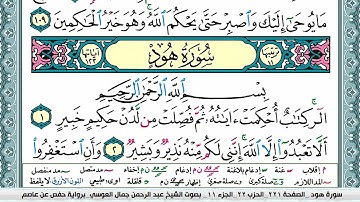 مَا يُوحَىٰٓ إِلَيْكَ وَٱصْبِرْ حَتَّىٰ يَحْكُمَ ٱللَّهُ وَهُوَ خَيْرُ ٱلْحَٰكِمِينَ ١٠٩
سُورَةُ هُودٍ
بِسْمِ ٱللَّهِ ٱلرَّحْمَٰنِ ٱلرَّحِيمِ
الٓر كِتَٰبٌ أُحْكِمَتْ ءَايَٰتُهُۥ ثُمَّ فُصِّلَتْ مِن لَّدُنْ حَكِيمٍ خَبِيرٍ ١
أَلَّا تَعْبُدُوٓا۟ إِلَّا ٱللَّهَ إِنَّنِى لَكُم مِّنْهُ نَذِيرٌ وَبَشِيرٌ ٢ وَأَنِ ٱسْتَغْفِرُوا۟
سورة هود _ الصفحة ٢٢١ _ الحزب ٢٢ _ الجزء ١١ _ بصوت الشيخ عبد الرحمن جمال العوسي _ برواية حفص عن عاصم